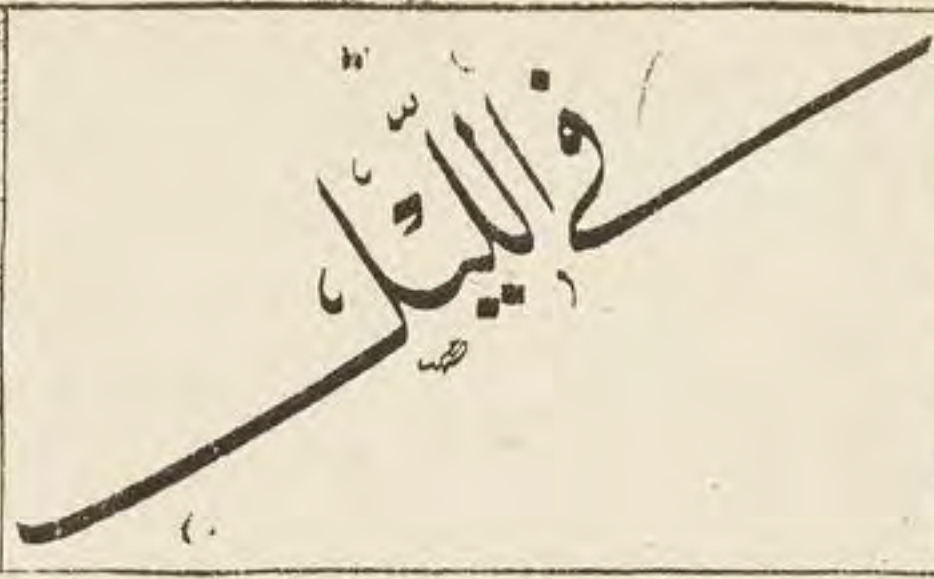 في اللّيْل